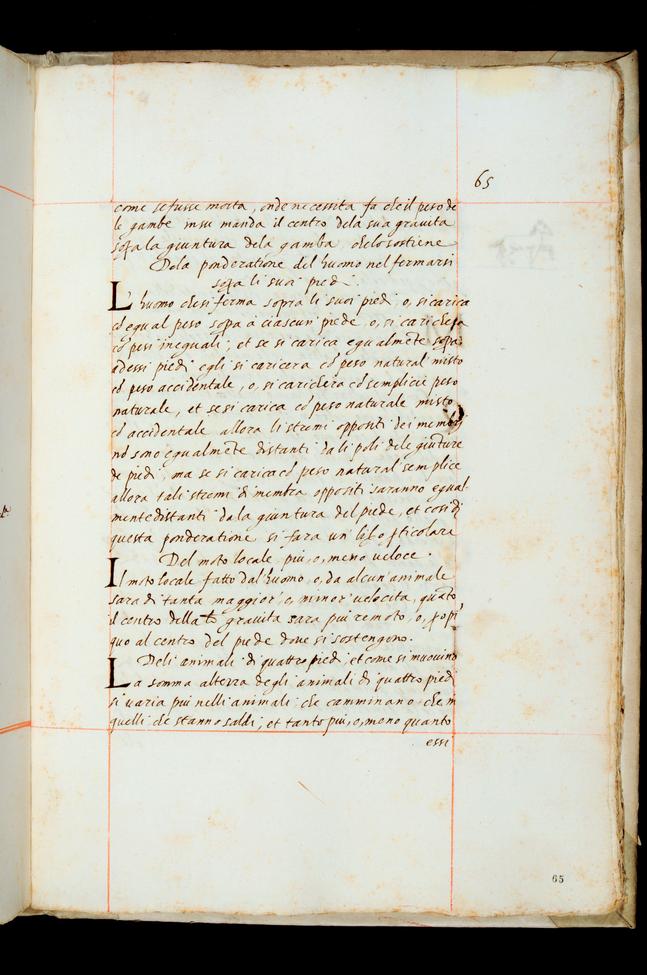 65
come se fusse morta, onde necessita fa che il peso de
le gambe in su manda il centro dela sua gravita
sopa la giuntura dela gamba che lo sostiene
Dela ponderatione del huomo nel fermarsi
sopa li suoi piedi.
L'huomo che si ferma sopra li suoi piedi, o, si carica
cō equal peso sopa a ciascun piede, o, si carichera
cō pesi ineguali, et se si carica equalmēte sopa
ad essi piedi egli si caricera cō peso natural misto
cō peso accidentale, o, si carichera cō semplicie peso
naturale, et se si carica cō peso naturale misto
cō accidentale allora li stremi oppositi dei membri
nō sono equalmēte distanti da li poli dele giūture
de piedi, ma se si carica cō peso natural semplice
allora tali stremi di membra oppositi saranno equal
mente distanti dala giuntura del piede, et cosi di
questa ponderatione si fara un lib̄o pticolare
Del moto locale piu, o, meno veloce.
Il moto locale fatto dal huomo, o, da alcun animale
sara di tanta maggior, o, minor velocita, quāto
il centro della gravita sara piu remoto, o, propi
quo al centro del piede dove si sostengono.
Deli animali di quattro piedi, et come si muovino
La somma altezza degli animali di quattro piedi
si varia piu nelli animali che camminano che in
quelli che stanno saldi, et tanto piu, o, meno quanto
essi
65